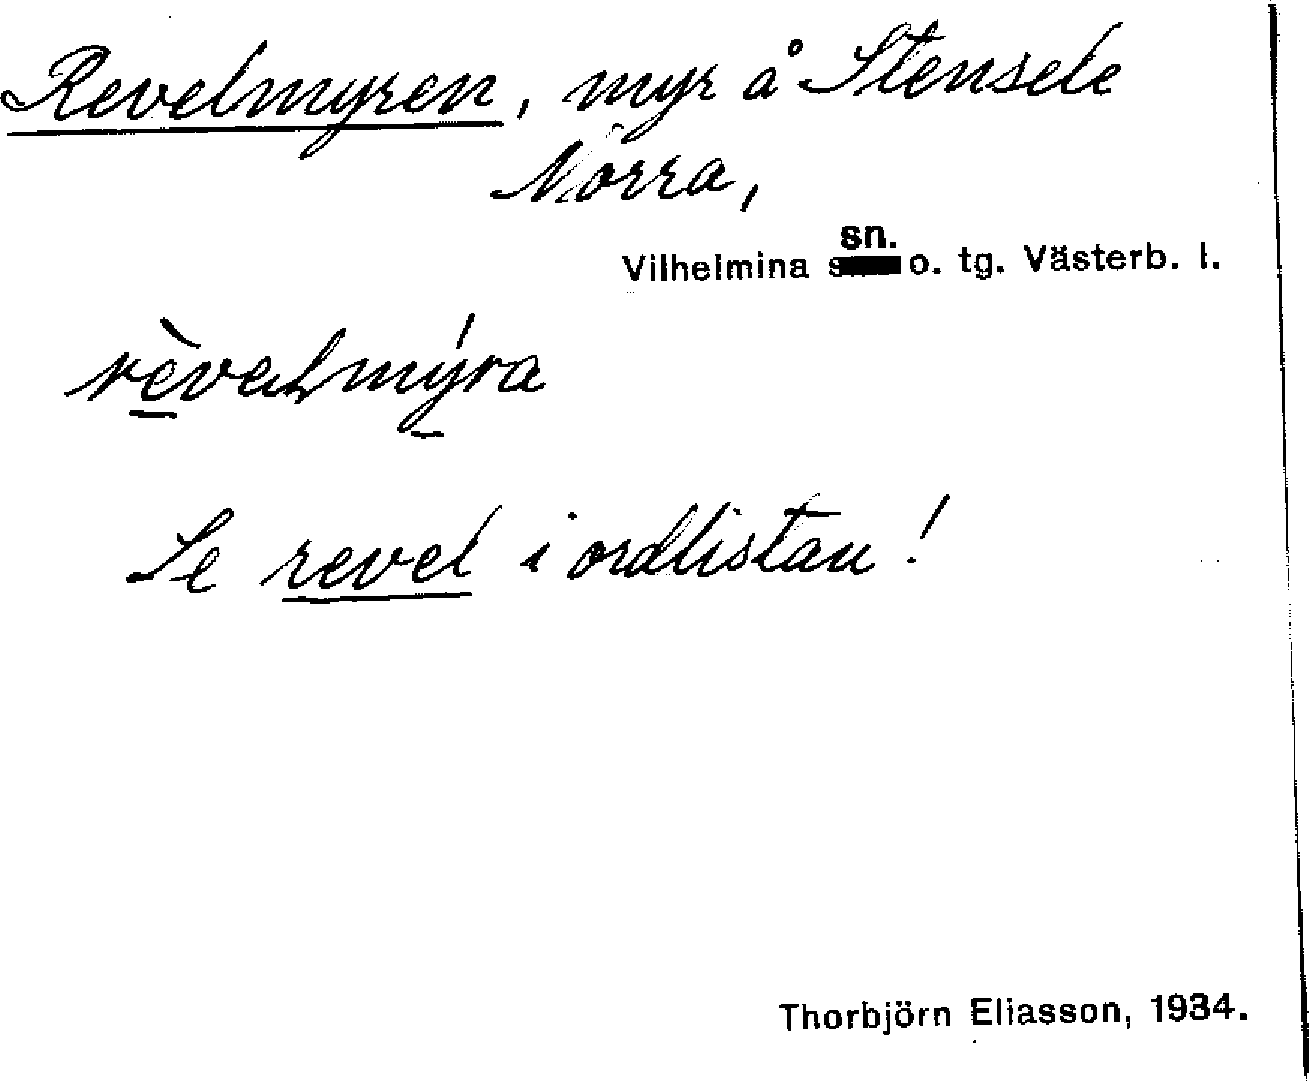 Revelmyren, myr å Stensele
Norra,
Vilhelmina sn. o. tg. Västerb. l.
Se revel i ordlistan!
Thorbjörn Eliasson, 1934.